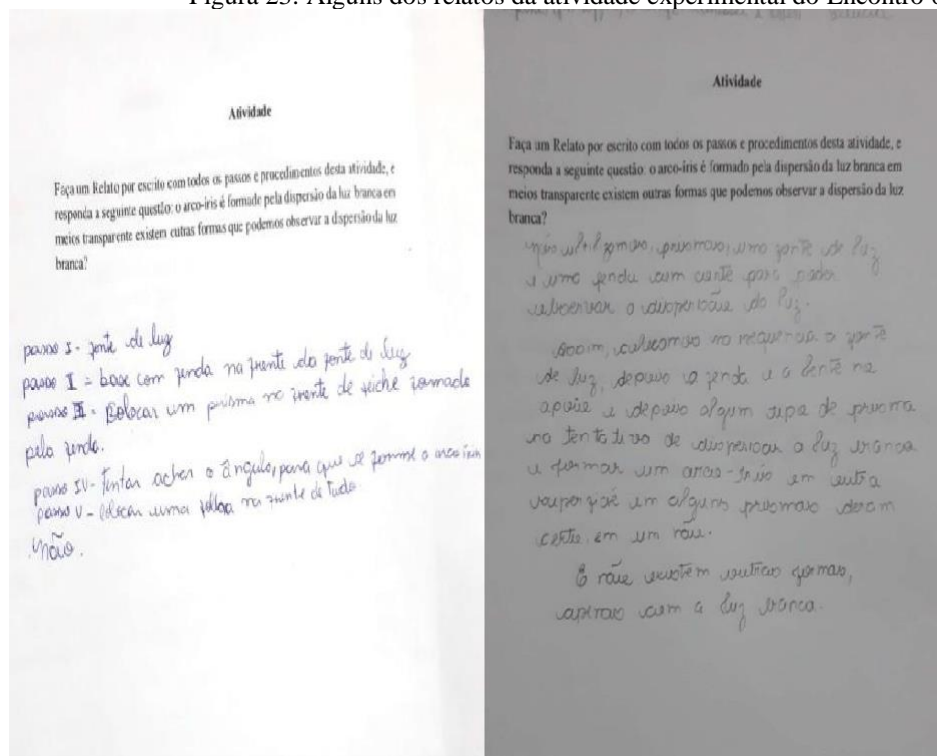 Figura 25: Alguns dos relatos da atividade experimental do Encontro
Atividade
Faça um Relato por escrito com todos os passos e procedimentos desta atividade, e
responda a seguinte questão: o arco-íris é formado pela dispersão da luz branca em
meios transparente existem outras formas que podemos observar a dispersão da luz
branca?
passo I - fonte de luz
passo I = base com fenda na frente da fonte de luz
passo III - Colocar um prisma na frente de feiche formado
pela fenda.
passo IV - Tentar achar o ângulo, para que se forme o arco iris
passo V - colocar uma folha na frente de tudo.
Não.
Atividade
Faça um Relato por escrito com todos os passos e procedimentos desta atividade, e
responda a seguinte questão: o arco-íris é formado pela dispersão da luz branca em
meios transparente existem outras formas que podemos observar a dispersão da luz
branca?
nós utilizamos, prismas, uma fonte de luz
e uma fenda com lente para poder
observar a dispersão da luz.
Assim, colocamos na sequencia a fonte
de luz, depois a fenda e a lente na
apoio e depois algum tipo de prisma
na tentativa de dispersar a luz branca
e formar um arco-íris em outra
superfície em alguns prismas deram
certo, em um não.
E não existem outras formas,
apenas com a luz branca.